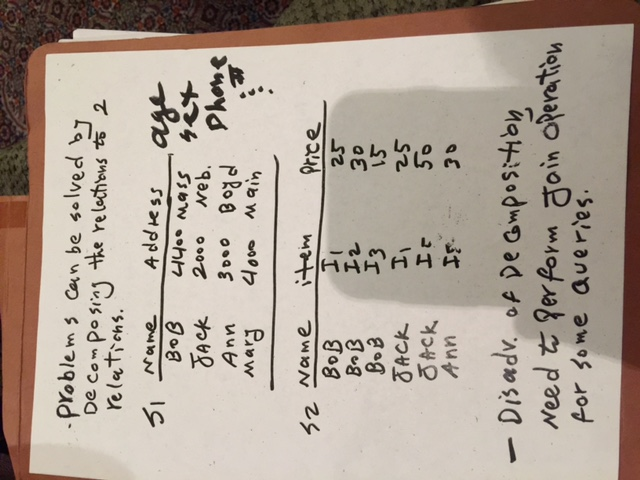 - Problems can be solved by
Decomposing the relations to 2
relations.
S1 Name Address age
BOB 4400 Mass sex
JACK 2000 Neb. Phone #
Ann 3000 Boyd
Mary 4000 Main
S2 Name item Price
BOB I1 25
BOB I2 30
BOB I3 15
JACK I1 25
JACK 50
Ann 30
- Disadv. of Decomposition
Need to perform Join operation
for some queries.